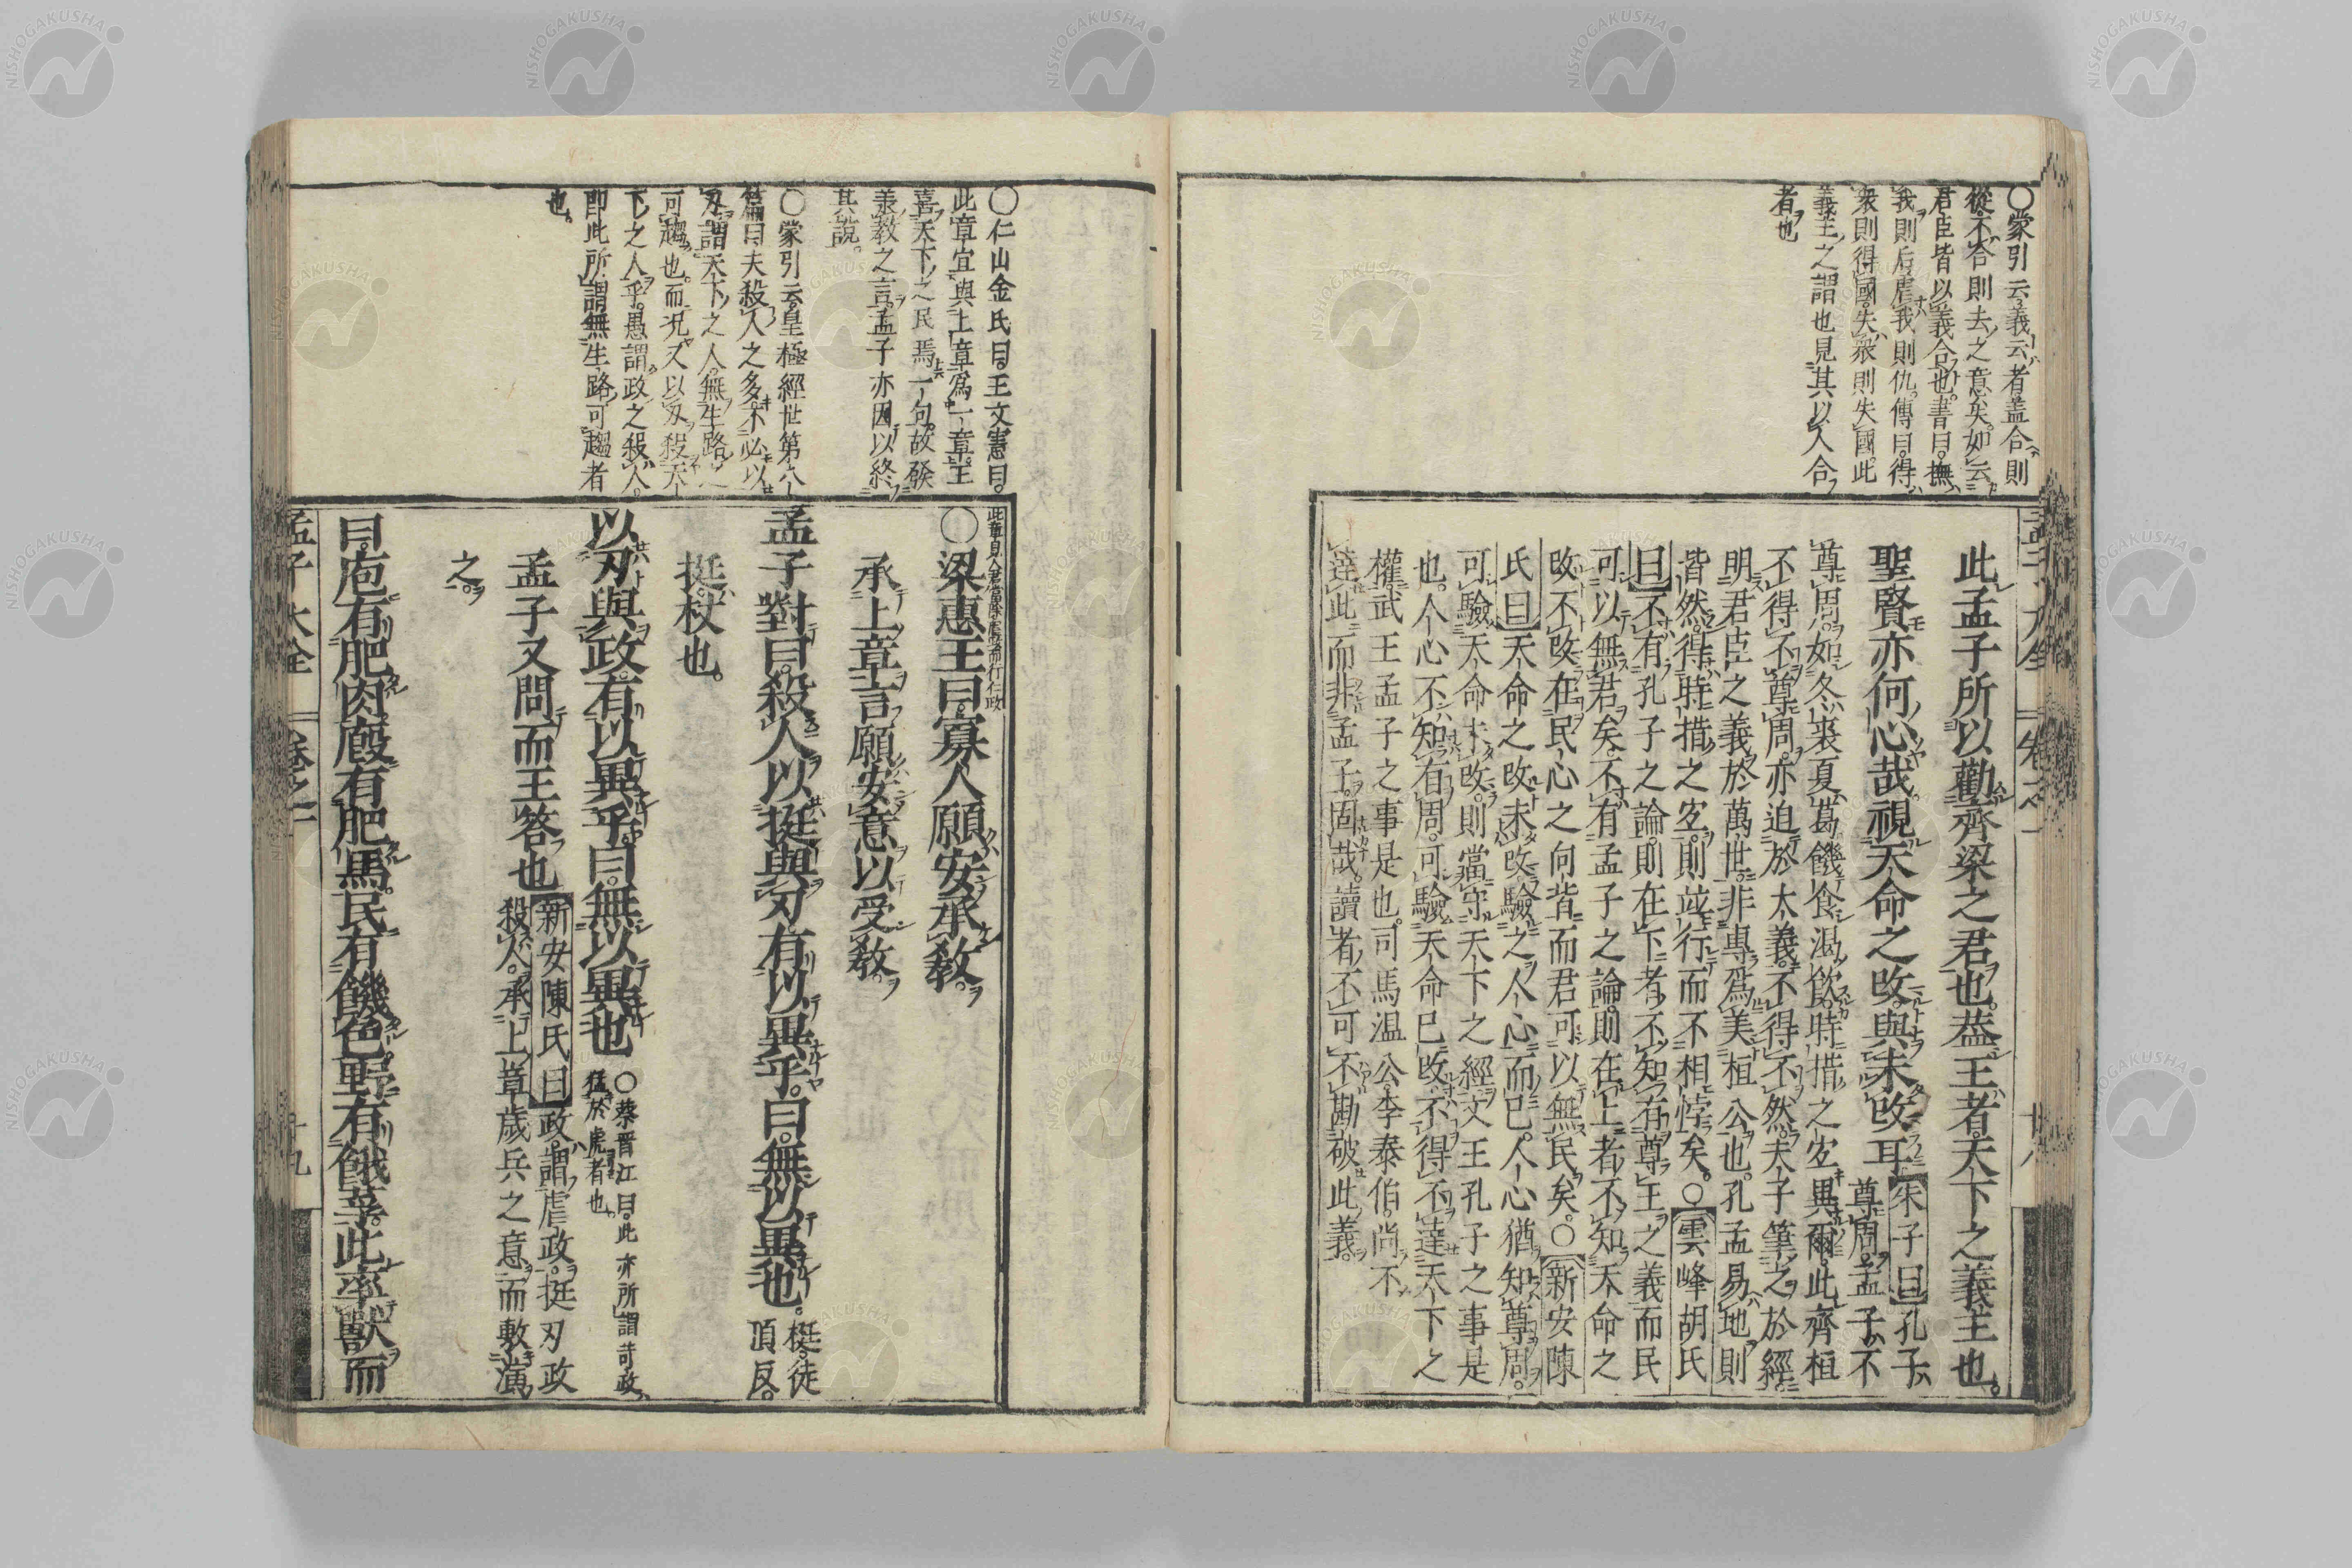 〇蒙引云義云者蓋合則
從不合則去之意矣如云
君臣皆以義合也書曰撫
我則后虐我則仇傳曰得
衆則得國失衆則失國此
義主之謂也見其以人合
者也
此孟子所以勸齊梁之君也蓋王者天下之義主也
聖賢亦何心哉視天命之改與未改耳
朱子曰孔子
尊周孟子不
尊周如冬裘夏葛饑食渴飲時措之宜異爾此齊桓
不得不尊周亦迫於大義不得不然夫子筆之於經
明君臣之義於萬世非專爲美桓公也孔孟易地則
皆然得時措之宜則竝行而不相悖矣〇雲峰胡氏
曰不有孔子之論則在下者不知有尊王之義而民
可以無君矣不有孟子之論則在上者不知天命之
改不改在民心之向背而君可以無民矣〇新安陳
氏曰天命之改未改驗之人心而已人心猶知尊周
可驗天命未改則當守天下之經文王孔子之事是
也人心不知有周可驗天命已改不得不達天下之
權武王孟子之事是也司馬温公李泰伯尚不
達此而非孟子固哉讀者不可不勘破此義
〇仁山金氏曰王文憲曰
此章宜與上章爲一章王
喜天下之民焉一句故發
義教之言孟子亦因以終
其說
〇蒙引云皇極經世第八
篇曰夫殺人之多不必以
刃謂天下之人無生路之
可趨也而况又以刃殺天
下之人乎愚謂政之殺人
即此所謂無生路可趨者
也
此章見人君當除虐政而行仁政
〇梁惠王曰寡人願安承敎
承上章言願安意以受敎
孟子對曰殺人以挺與刃有以異乎曰無以異也
梃徒
頂反
挺杖也
以刃與政有以異乎曰無以異也
〇蔡晋江曰此亦所謂苛政
猛於虎者也
孟子又問而王答也
新安陳氏曰政謂虐政挺刃政
殺人承上章歲兵之意而敷演
之
曰庖有肥肉廄有肥馬民有饑色野有餓莩此率獸而
孟子大全
卷之一
十九